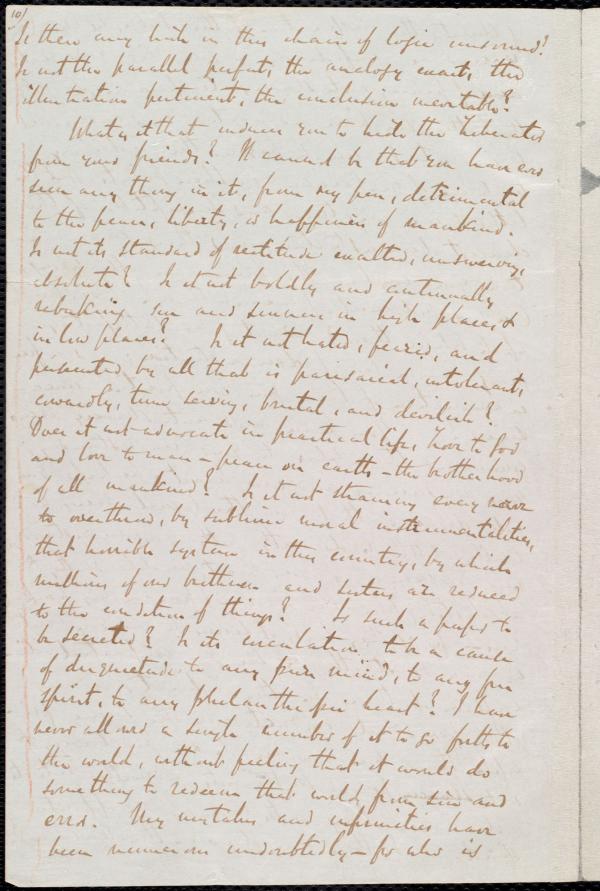 10/
Is there any link in this chain of logic unsound?
Is not the parallel perfect, the analogy exact, the
illustration pertinent, the conclusion inevitable?
What is it that induces you to hide the Liberator
from your friends? It cannot be that you have ever
seen any thing in it, from my pen, detrimental
to the peace, liberty, or happiness of mankind.
Is not its standard of rectitude exalted, unswerving,
absolute? Is it not boldly and continually
rebuking sin and sinners in high places &
in low places? Is it not hated, feared, and
persecuted by all that is pharisaical, intolerant,
cowardly, time serving, brutal, and devilish?
Does it not advocate in practical life, love to God
and love to man – peace on earth – the brotherhood
of all mankind? Is it not straining every nerve
to overthrow, by sublime moral instrumentalities,
that horrible system in this country, by which
millions of our brethren and sisters are reduced
to the condition of things? Is such a paper to
be secreted? Is its circulation to be a cause
of disquietude to any pure mind, to any free
spirit, to any philanthropic heart? I have
never allowed a single number of it to go forth to
the world, without feeling that it would do
something to redeem that world from sin and
error. My mistakes and infirmities have
been numerous undoubtedly – for who is